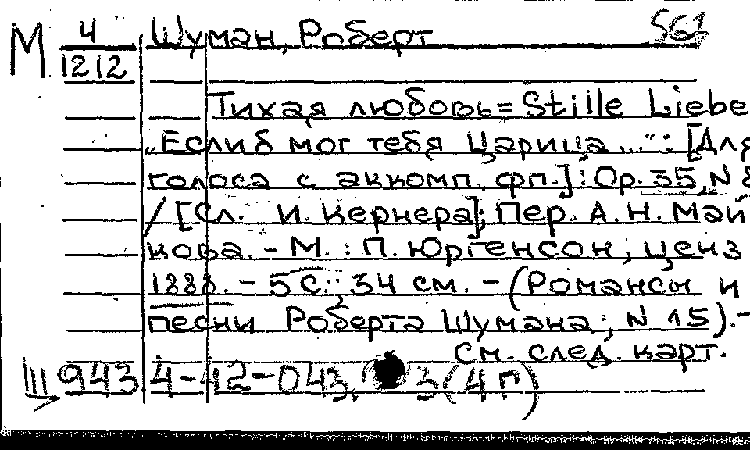 М 4 Шуман, Роберт 561
1212
Тихая любовь = Stille Liebe
„Если б мог тебя Царица...": [Для
голоса с аккомп. фп.]: Op. 35, N 8
/ [Сл. И. Кернера]; Пер. А.Н. Май
кова. - М.: П. Юргенсон, ценз
1888. - 5 с.; 34 см. - (Романсы и
песни Роберта Шумана; N 15). -
См. след. карт.
Ш 943 4-42-043. 3 (4 г)